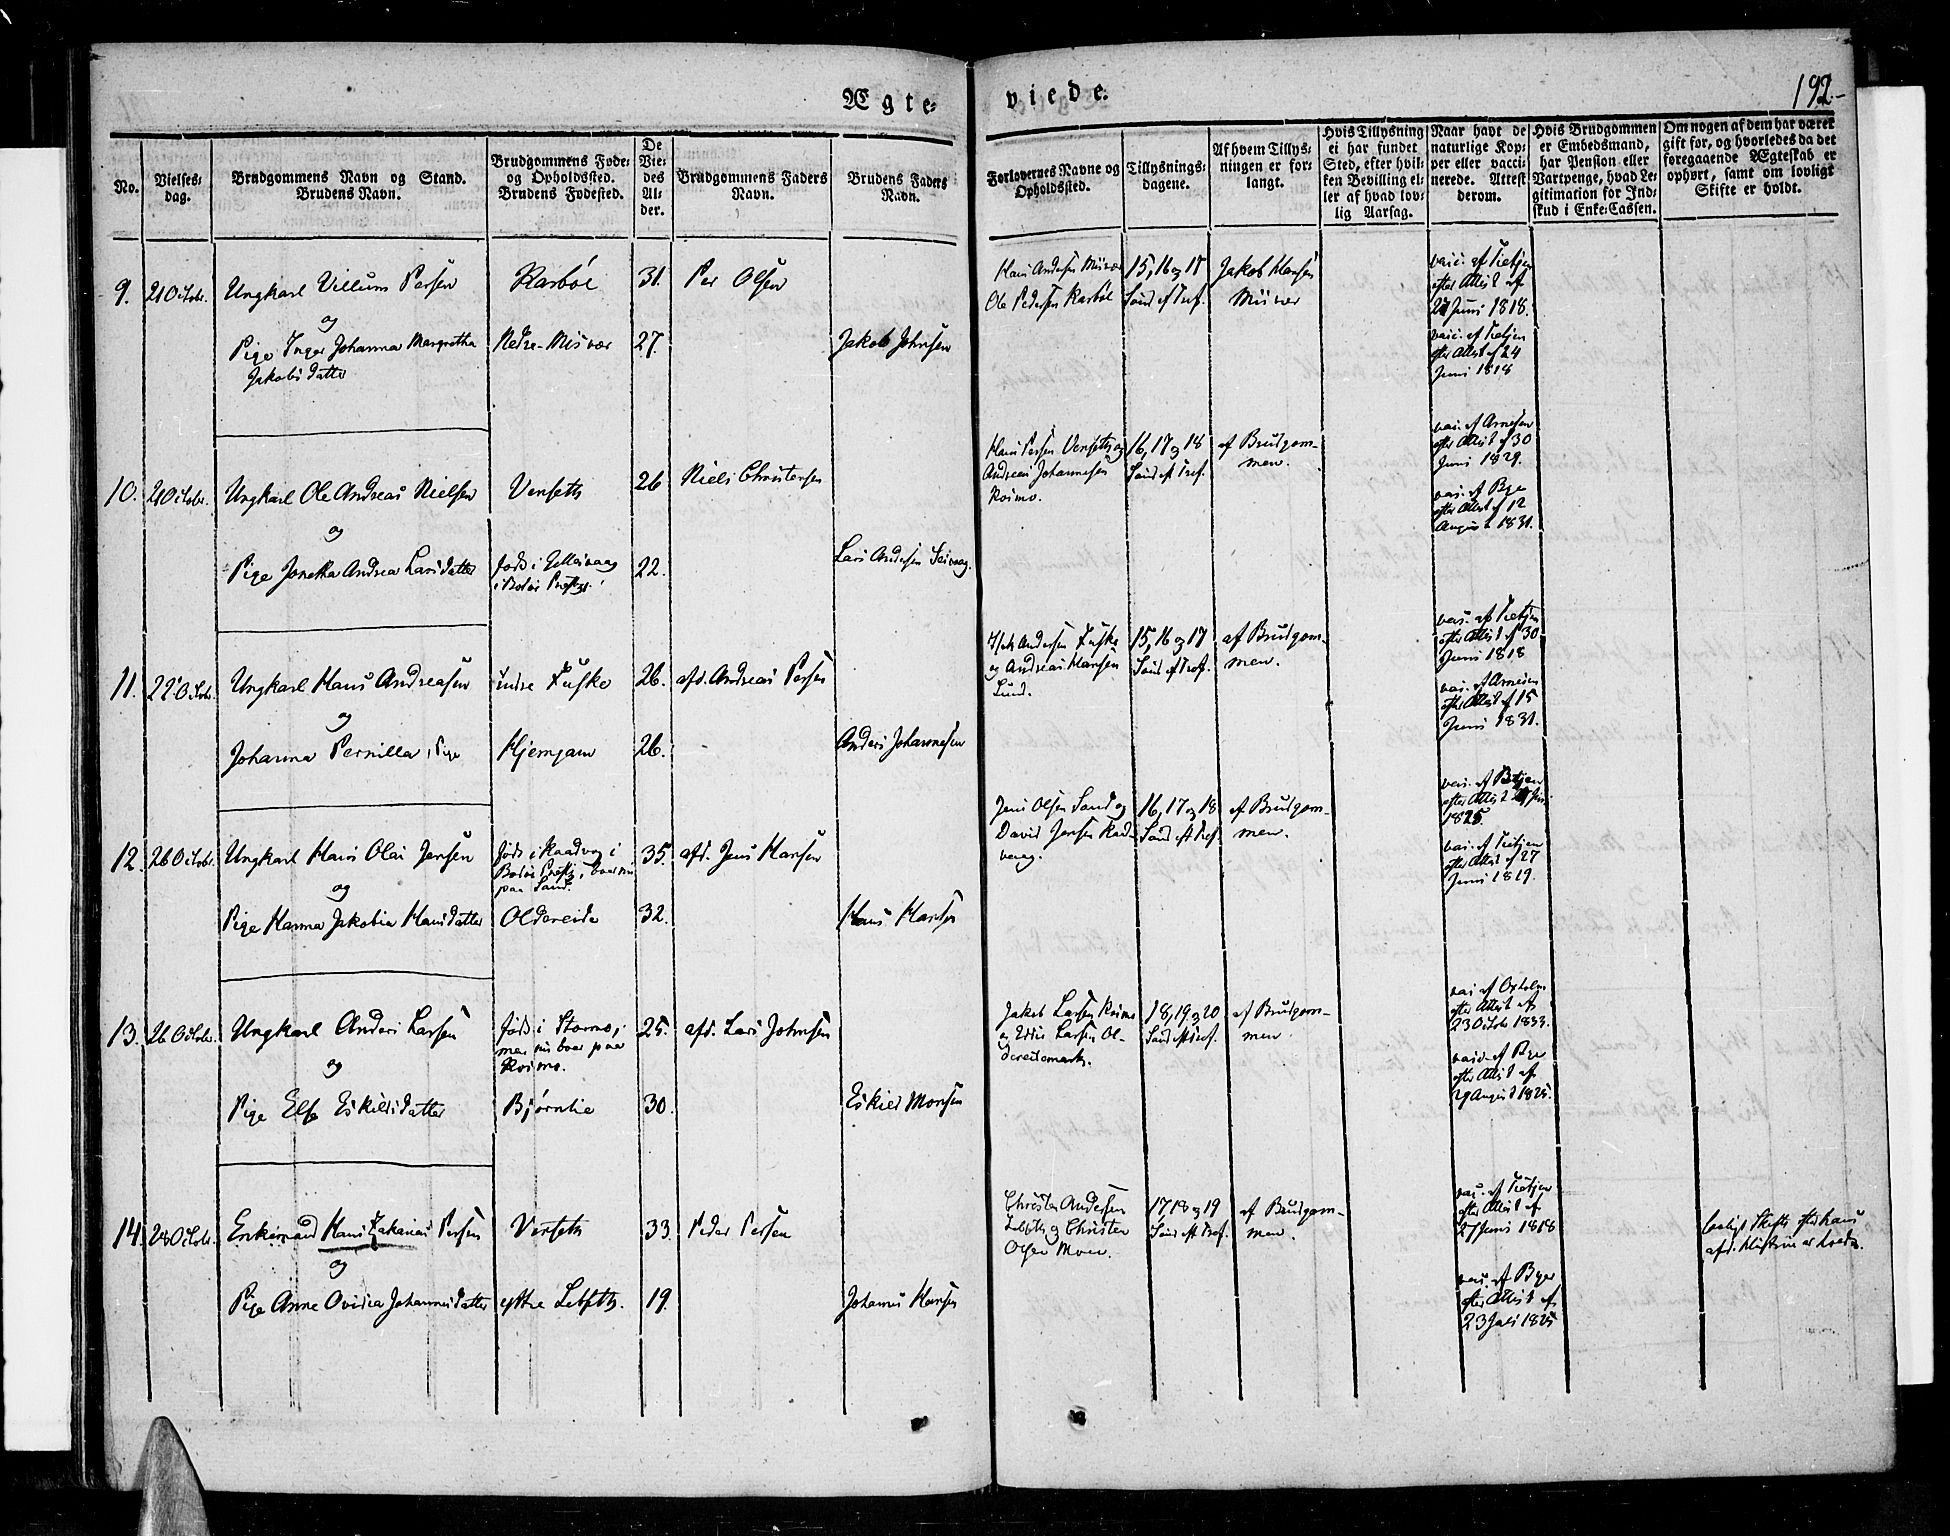 Ægte-
viede.
192
No.
Vielses-
dag.
Brudgommens Navn og Stand.
Brudens Navn.
Brudgommens Føde-
og Opholdssted.
Brudens Fødested.
De
Vie-
des
Al-
der.
Brudgommens Faders
Navn.
Brudens Faders
Navn.
Forlovernes Navne og
Opholdssted.
Tillysnings-
dagene.
Af hvem Tillys-
ningen er for-
langt.
Hvis Tillysning
ei har fundet
Sted, efter hvil-
ken Bevilling el-
ler af hvad lov-
lig Aarsag.
Naar havt de
naturlige Kop-
per eller vacci-
nerede. Attest
derom.
Hvis Brudgommen
er Embedsmand,
har Pension eller
Vartpenge, hvad Le-
gitimation for Ind-
skud i Enke-Cassen.
Om nogen af dem har været
gift før, og hvorledes da det
foregaaende Ægteskab er
ophørt, samt om lovligt
Skifte er holdt.
9. 21 Octobr. Ungkarl Villum Persen
og
Pige Inger Johanna Margretha
Jakobsdatter
Karbøl
Nedre-Misvær
31.
27.
Per Olsen
Jakob Johnsen
Hans Andersen Misvær
Ole Pedersen Karbøl
15, 16 og 17
Sönd. eft. Tref.
Jakob Hansen
Misvær
vacc. af Tietjen
efter Attest af
27 Juni 1818.
vacc. af Tietjen
efter Attest af 24
Juni 1818
10. 21 Octobr. Ungkarl Ole Andreas Nielsen
og
Pige Jonetha Andrea Larsdatter
Venseth
født i
i Bodøe Præstgj.
26
22.
Niels Christensen
Lars Andersen Seivaag.
Hans Persen Venseth og
Andreas Johannesen
Kosmo.
16, 17 og 18
Sönd. eft. Tref.
af Brudgom-
men.
vac. af Arnesen
efter Attest af 30
Juni 1829.
vac. af Bye
efter Attest af 12
August 1831.
11. 22 Octobr. Ungkarl Hans Andreasen
og
Johanna Pernilla, Pige
Indre Fuske
Hjemgam
26.
26.
afd. Andreas Persen
Anders Johannesen
Andersen Fuske
og Andreas Hansen
Lund.
15, 16 og 17
Sönd. eft. Tref.
af Brudgom-
men.
vac. af Tietjen
efter Attest af 30
Juni 1818
vac. af Arnesen
efter Attest af 15
Juni 1831.
12. 26 Octobr. Ungkarl Hans Olai Jensen
og
Pige Hanna Jakobia Hansdatter
født i Kaadvag i
Bodøe Præstgj., boer nu
paa Sand.
Oldereide
35.
32.
afd. Jens Hansen
Hans Hansen
Jens Olsen Sand og
David Jensen Kad-
vaag.
16, 17 og 18
Sönd. eft. Tref.
af Brudgom-
men.
efter Attest
1825.
vac. af Tietjen
efter Attest af 27
Juni 1819.
13. 26 Octobr. Ungkarl Anders Larsen
og
Pige Else Eskildsdatter
født i Stormo,
men nu boer paa
Kosmo.
Bjørnlie
25.
30.
afd. Lars Johnsen
Eskild Monsen
Jakob Larsen Kosmo
og Larsen Ol-
dereidemark.
18, 19 og 20
Sönd. eft. Tref.
af Brudgom-
men
efter Attest af
23 Octobr 1833.
vac. af Bye
efter Attest af
29 August 1825.
14. 28 Octobr. Enkemand Hans Zakarias Persen
og
Pige Anne Ovidia Johannesdatter
Venseth
yttre Lebseth.
33.
19.
Peder Persen
Johannes Hansen
Christen Andersen
Lebseth og Christen
Olsen Moen.
17, 18 og 19
Sönd. eft. Tref.
af Brudgom-
men.
vac. af Tietjen
efter Attest af
27 Juni 1818
vac. af Bye
efter Attest af
23 Juli 1825
lovligt Skifte efter hans
afd. Hustrue er holdt.